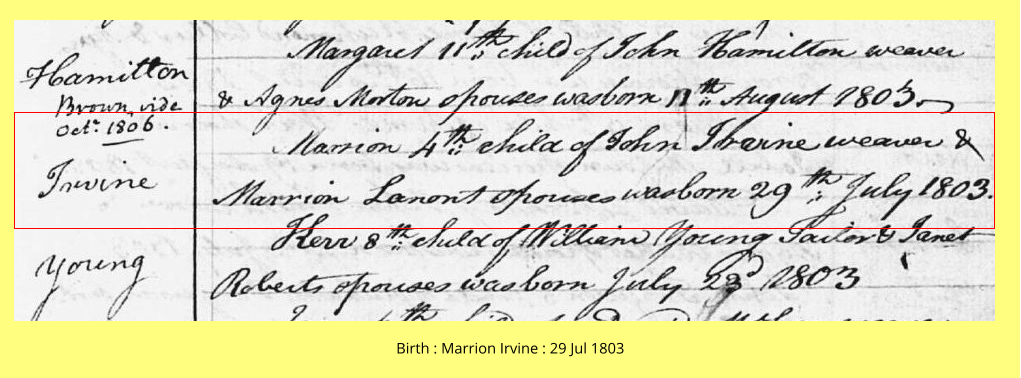 Margaret 11th child of John Hamilton weaver
Hamilton
Brown vide
& Agnes Morton spouses was born 11th August 1803.
Octr. 1806.
Marrion 4th child of John Irvine weaver &
Irvine
Marrion Lamont spouses was born 29th July 1803.
Kerr 8th child of William Young Tailor & Janet
Young
Roberts spouses was born July 23d 1803
Birth : Marrion Irvine : 29 Jul 1803